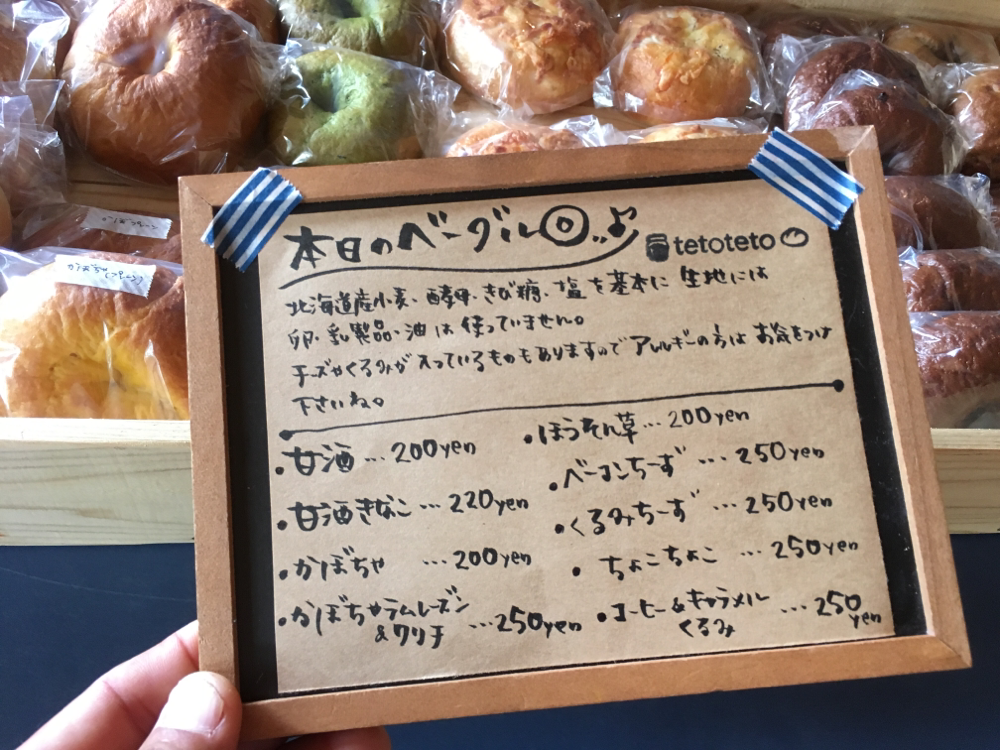 本日のベーグル
tetoteto
北海道産小麦、酵母、きび糖、塩を基本に生地には
卵・乳製品・油は使っていません。
チーズやくるみが入っているものもありますのでアレルギーの方はお気をつけ
下さいね。
・甘酒…200yen
・甘酒きなこ…220yen
・かぼちゃ…200yen
・かぼちゃラムレーズン
&クリチ…250yen
・ほうれん草…200yen
・ベーコンちーず…250yen
・くるみちーず…250yen
・ちょこちょこ…250yen
・コーヒー&キャラメル
くるみ…250yen